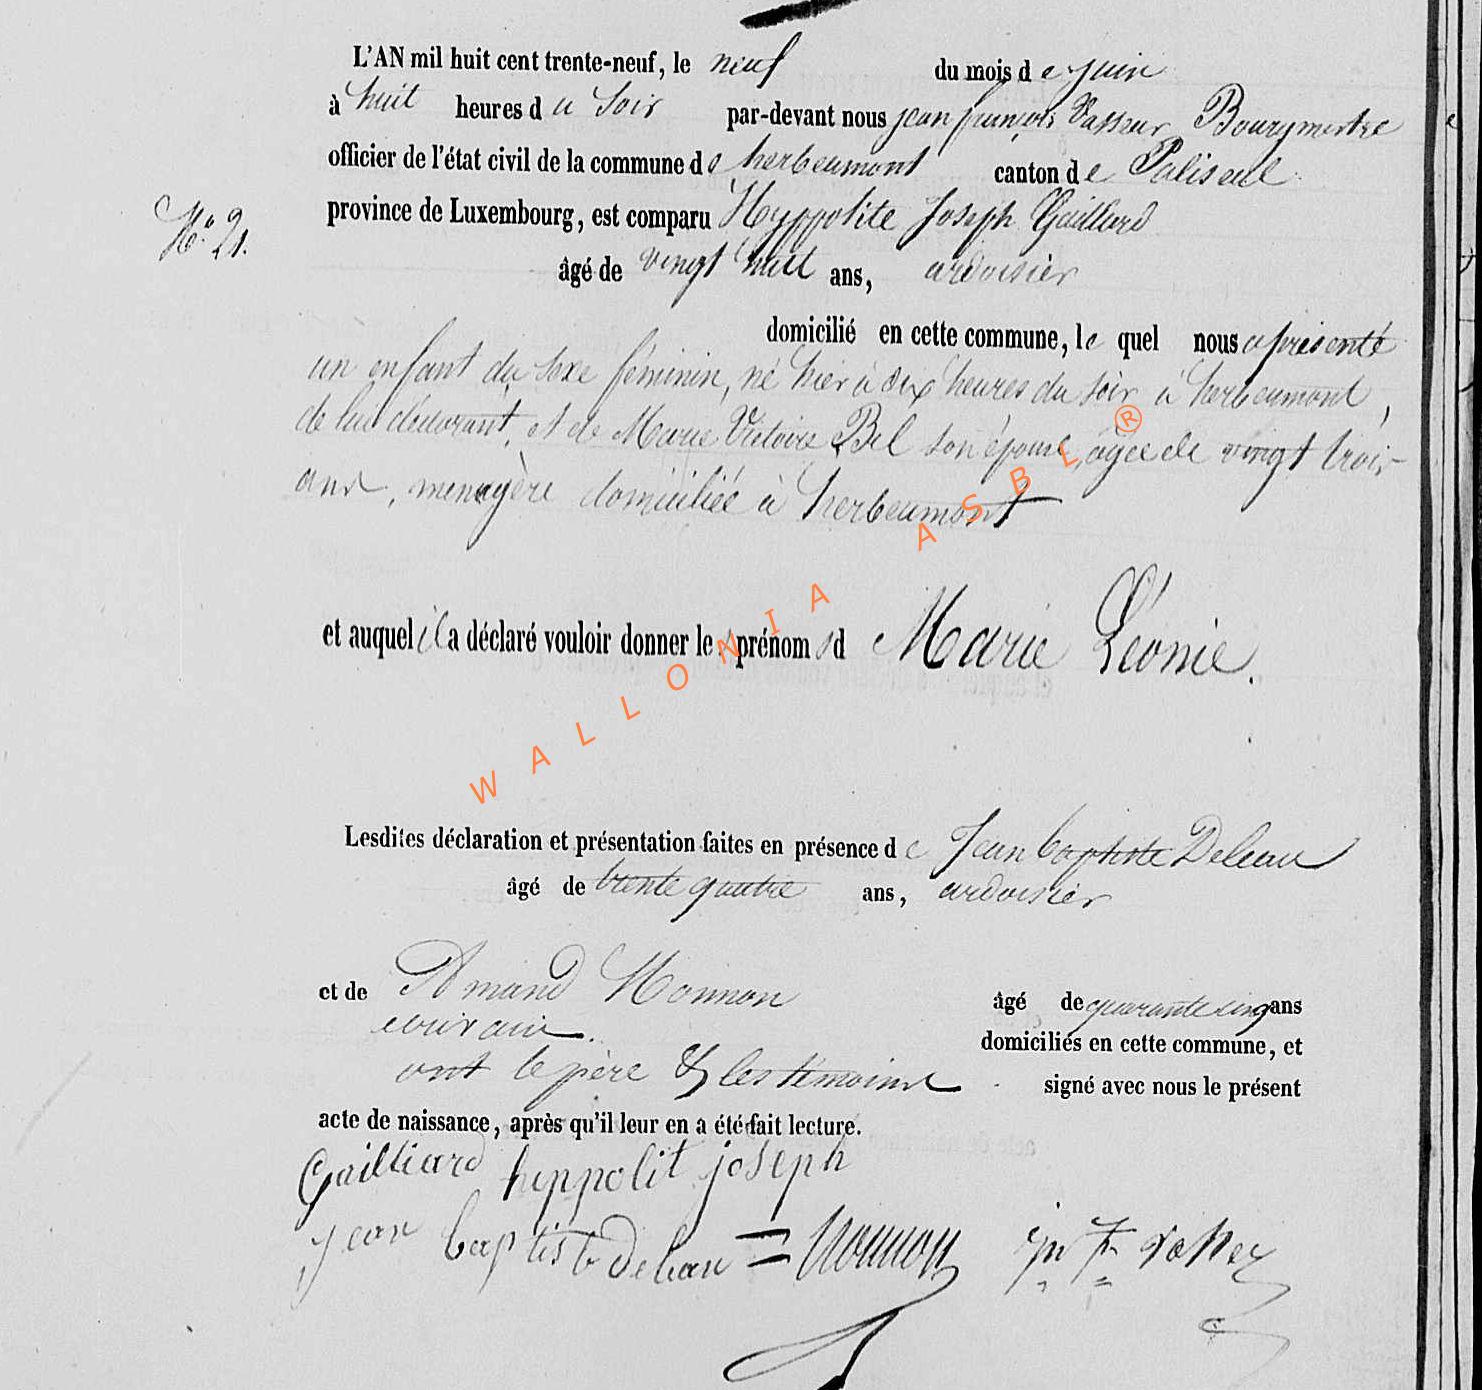 L'AN mil huit cent trente-neuf, le neuf du mois de juin
à huit heures du soir par-devant nous jean françois Vasseur Bourgmestre
officier de l'état civil de la commune de herbeumont canton de Paliseul
province de Luxembourg, est comparu Hyppolite Joseph Gaillard
N° 21.
âgé de vingt huit ans, ardoisier
domicilié en cette commune, le quel nous a présenté
un enfant du sexe féminin, né hier à dix heures du soir à herbeumont,
de lui déclarant, et de Marie Victoire Bel son épouse, agée de vingt trois
ans, menagère domiciliée à herbeumont
et auquel il a déclaré vouloir donner les prénoms d Marie Léonie.
Lesdites déclaration et présentation faites en présence de Jean baptiste Deleau
âgé de trente quatre ans, ardoisier
et de Amand Monnon âgé de quarante cinq ans
domiciliés en cette commune, et
ont le père & les témoins signé avec nous le présent
acte de naissance, après qu'il leur en a été fait lecture.
Gailliard hippolit joseph
jean baptiste deleau
WALLONIA ASBL ®